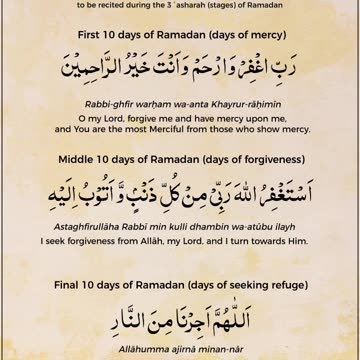 to be recited during the 3 ʿasharah (stages) of Ramadan
First 10 days of Ramadan (days of mercy)
رَبِّ اغْفِرْ وَارْحَمْ وَاَنْتَ خَيْرُ الرَّاحِمِيْنَ
Rabbi-ghfir warḥam wa-anta Khayrur-rāḥimīn
O my Lord, forgive me and have mercy upon me,
and You are the most Merciful from those who show mercy.
Middle 10 days of Ramadan (days of forgiveness)
اَسْتَغْفِرُ اللهَ رَبِّيْ مِنْ كُلِّ ذَنْبٍ وَّ اَتُوْبُ اِلَيْهِ
Astaghfirullāha Rabbī min kulli dhambin wa-atūbu ilayh
I seek forgiveness from Allāh, my Lord, and I turn towards Him.
Final 10 days of Ramadan (days of seeking refuge)
اَللّٰهُمَّ اَجِرْنَا مِنَ النَّارِ
Allāhumma ajirnā minan-nār